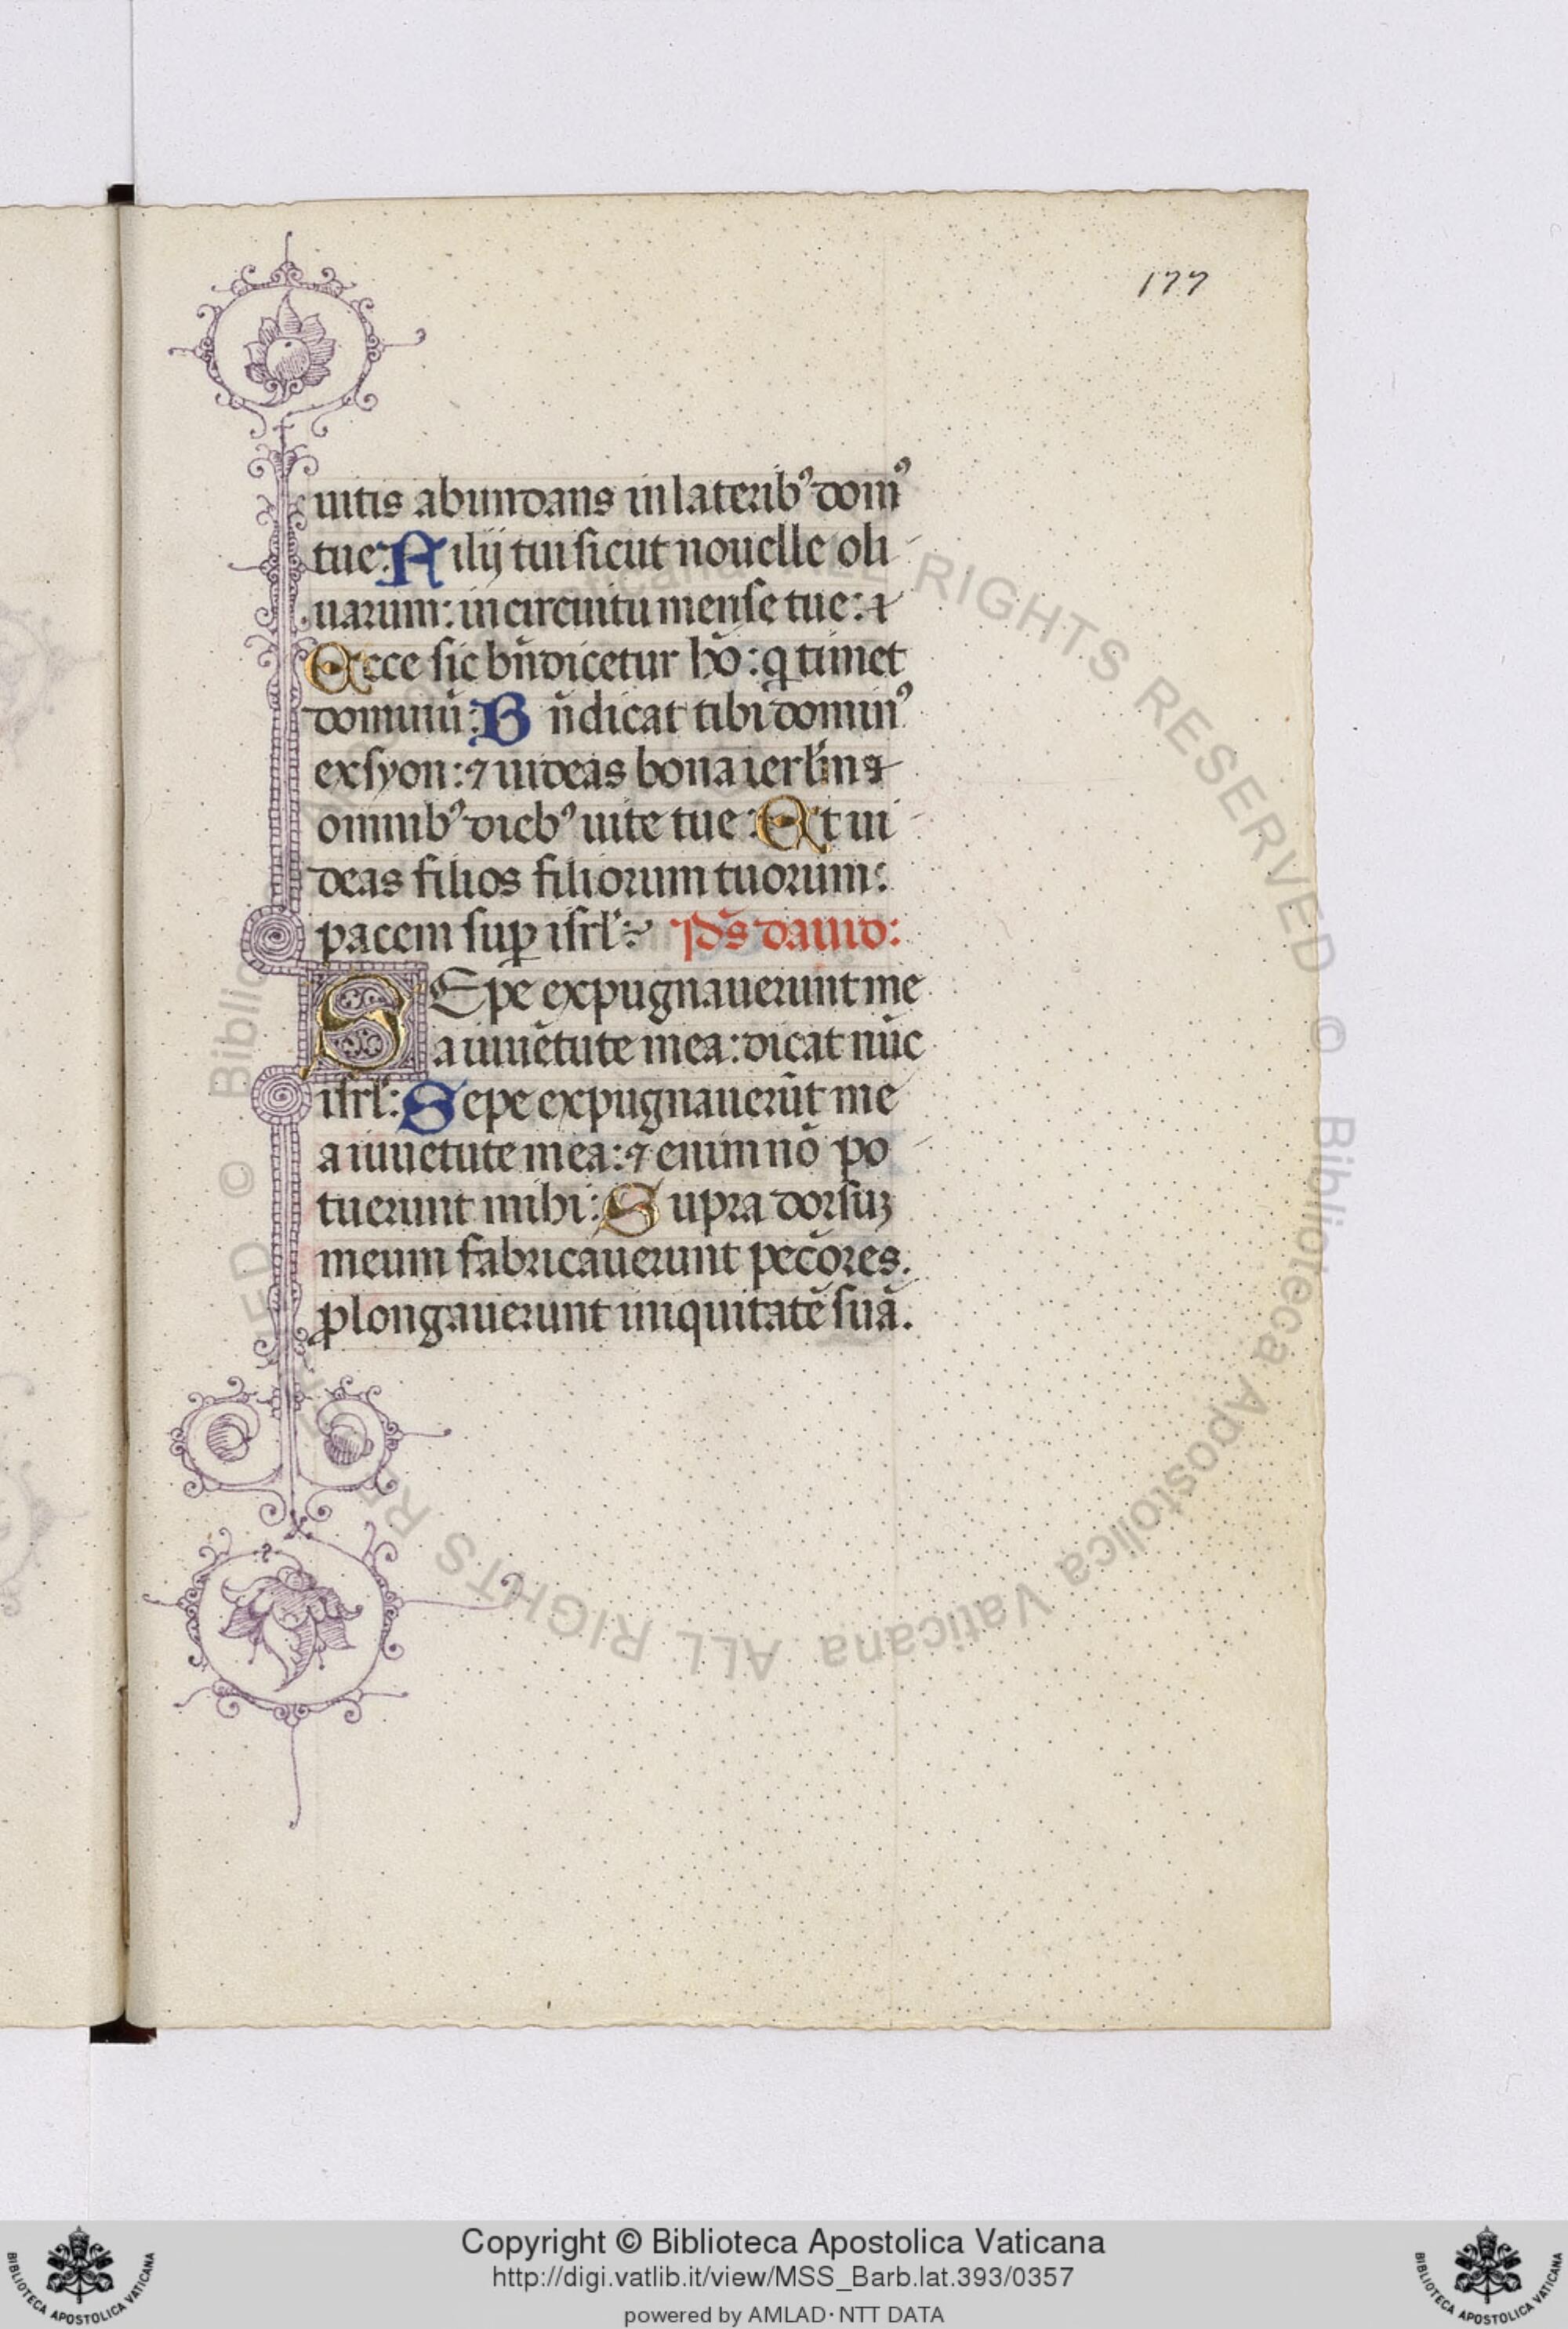 177
uitis abundans in laterib⁹ dom⁹
tue: Filij tui sicut nouelle oli-
uarum: in circuitu mense tue:
Ecce sic bn̄dicetur hō: q timet
dominū: Bn̄dicat tibi domin⁹
ex syon: ⁊ uideas bona ierl̄m
omnib⁹ dieb⁹ uite tue: Et ui-
deas filios filiorum tuorum:
pacem suꝑ isrl̄: Ps̄ dauid:
SEpe expugnauerunt me
a iuuētute mea: dicat nūc
isrl̄: Sepe expugnauerūt me
a iuuētute mea: ⁊ enim nō po-
tuerunt mihi: Supra dorsuꝫ
meum fabricauerunt pecc̄ores.
ꝓlongauerunt iniquitatē suā.
© Biblioteca Apostolica Vaticana ALL RIGHTS RESERVED © Biblioteca Apostolica Vaticana ALL RIGHTS RESERVED
Copyright © Biblioteca Apostolica Vaticana
http://digi.vatlib.it/view/MSS_Barb.lat.393/0357
powered by AMLAD·NTT DATA
BIBLIOTECA APOSTOLICA VATICANA
BIBLIOTECA APOSTOLICA VATICANA